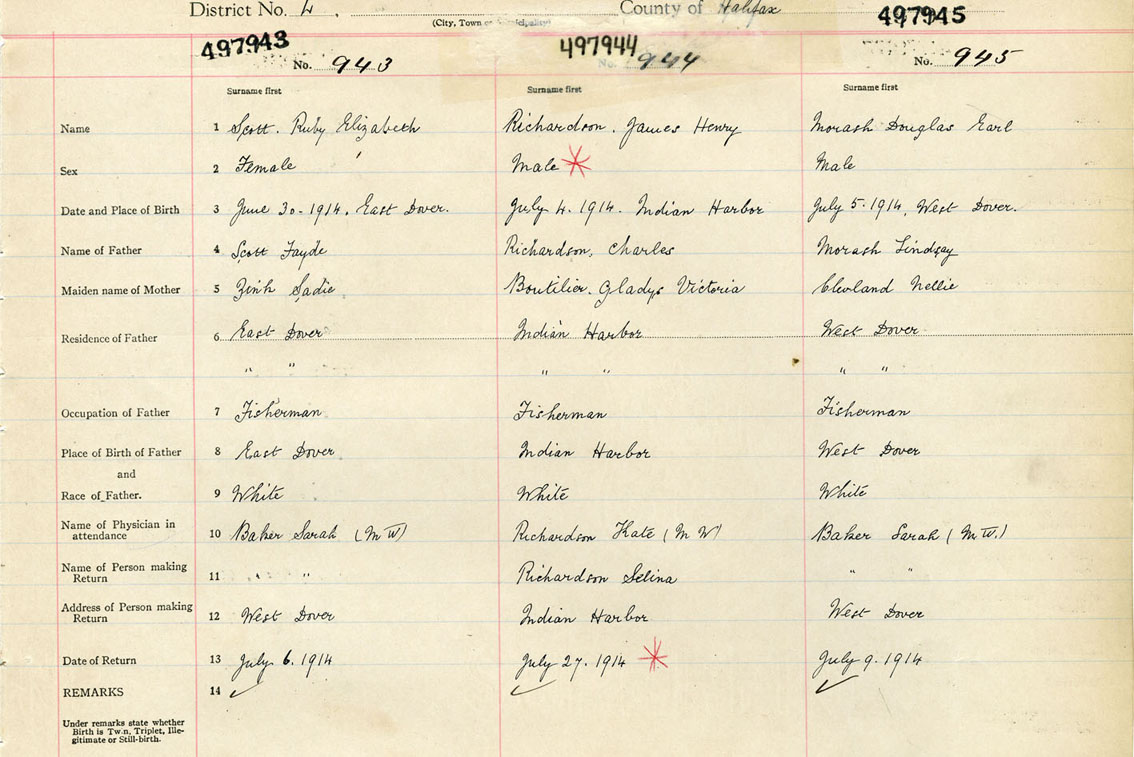 District No. 4. County of Halifax
(City, Town or Municipality)
497943 497944 497945
No. 943 No. 944 No. 945
Surname first Surname first Surname first
Name 1 Scott. Ruby Elizabeth Richardson. James Henry Morash Douglas Earl
Sex 2 Female Male Male
Date and Place of Birth 3 June 30-1914. East Dover. July 4. 1914. Indian Harbor July 5. 1914, West Dover.
Name of Father 4 Scott Fayde Richardson, Charles Morash Lindsay
Maiden name of Mother 5 Zink Sadie Boutilier. Gladys Victoria Clevland Nellie
Residence of Father 6 East Dover Indian Harbor West Dover
" " " " " "
Occupation of Father 7 Fisherman Fisherman Fisherman
Place of Birth of Father 8 East Dover Indian Harbor West Dover
and
Race of Father. 9 White White White
Name of Physician in
attendance 10 Baker Sarah (M W) Richardson Kate (M W) Baker Sarah (M W.)
Name of Person making
Return 11 " " Richardson Selina " "
Address of Person making
Return 12 West Dover Indian Harbor West Dover
Date of Return 13 July 6. 1914 July 27. 1914 July 9. 1914
REMARKS 14
Under remarks state whether
Birth is Twin, Triplet, Ille-
gitimate or Still-birth.